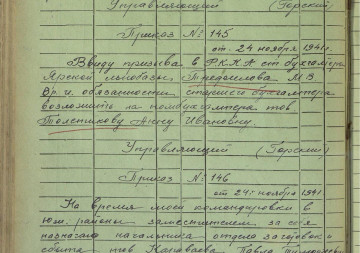 Управляющий (Горский)
Приказ № 145
от 24 ноября 1941г.
Ввиду призыва в РККА ст бухгалтера
Ярской нефтебазы М.В
Вр. и. обязанности старшего бухгалтера
возложить на помбухгалтера тов
Толстикову Анну Ивановну.
Управляющий (Горский)
Приказ № 146
от 24 ноября 1941
На время моей командировки в
юж. районы заместителем за себя
назначаю начальника отдела заготовок и
сбыта тов Караваева Павла